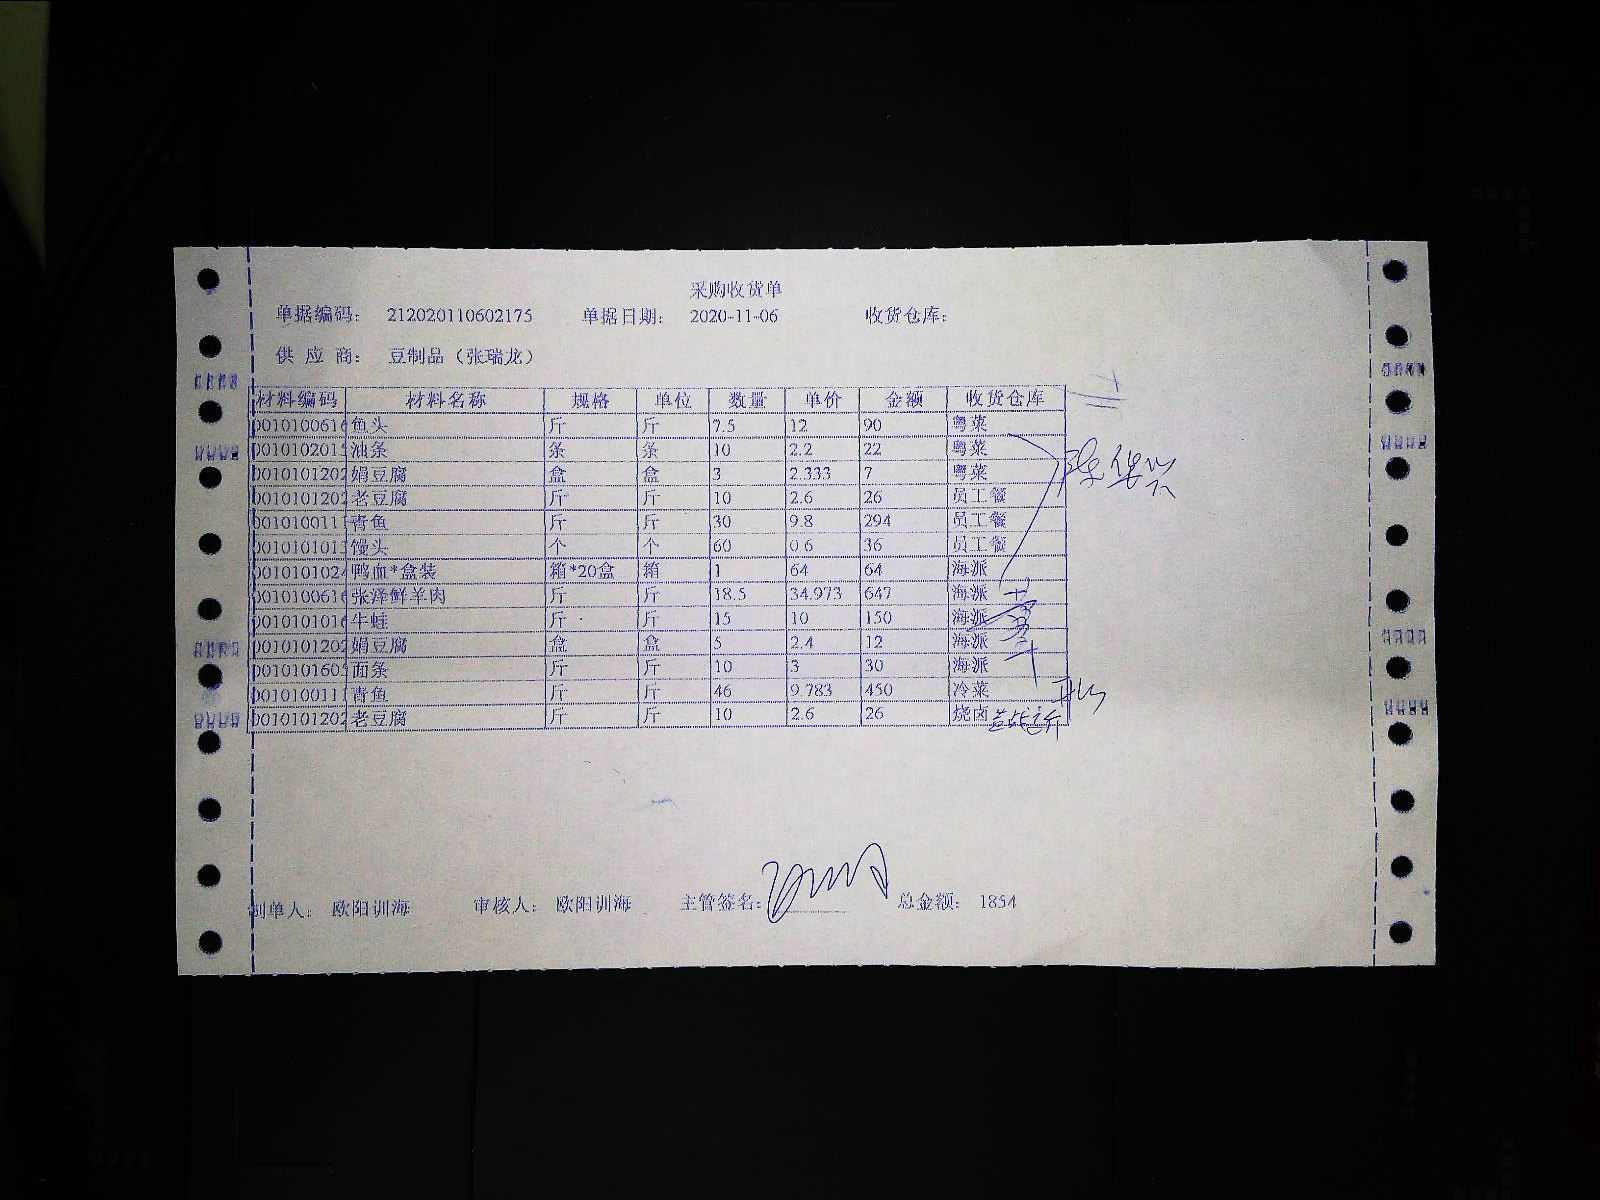 采购收货单
单据编码： 212020110602175 单据日期： 2020-11-06 收货仓库：
供 应 商： 豆制品（张瑞龙）
材料编码 材料名称 规格 单位 数量 单价 金额 收货仓库
0010100616 鱼头 斤 斤 7.5 12 90 粤菜
0010102015 油条 条 条 10 2.2 22 粤菜
0010101202 娟豆腐 盒 盒 3 2.333 7 粤菜
0010101202 老豆腐 斤 斤 10 2.6 26 员工餐
0010100111 青鱼 斤 斤 30 9.8 294 员工餐
0010101013 馒头 个 个 60 0.6 36 员工餐
0010101024 鸭血*盒装 箱*20盒 箱 1 64 64 海派
0010100616 张泽鲜羊肉 斤 斤 18.5 34.973 647 海派
0010101016 牛蛙 斤 斤 15 10 150 海派
0010101202 娟豆腐 盒 盒 5 2.4 12 海派
0010101605 面条 斤 斤 10 3 30 海派
0010100111 青鱼 斤 斤 46 9.783 450 冷菜
0010101202 老豆腐 斤 斤 10 2.6 26 烧卤
制单人： 欧阳训海 审核人： 欧阳训海 主管签名： 总金额： 1854